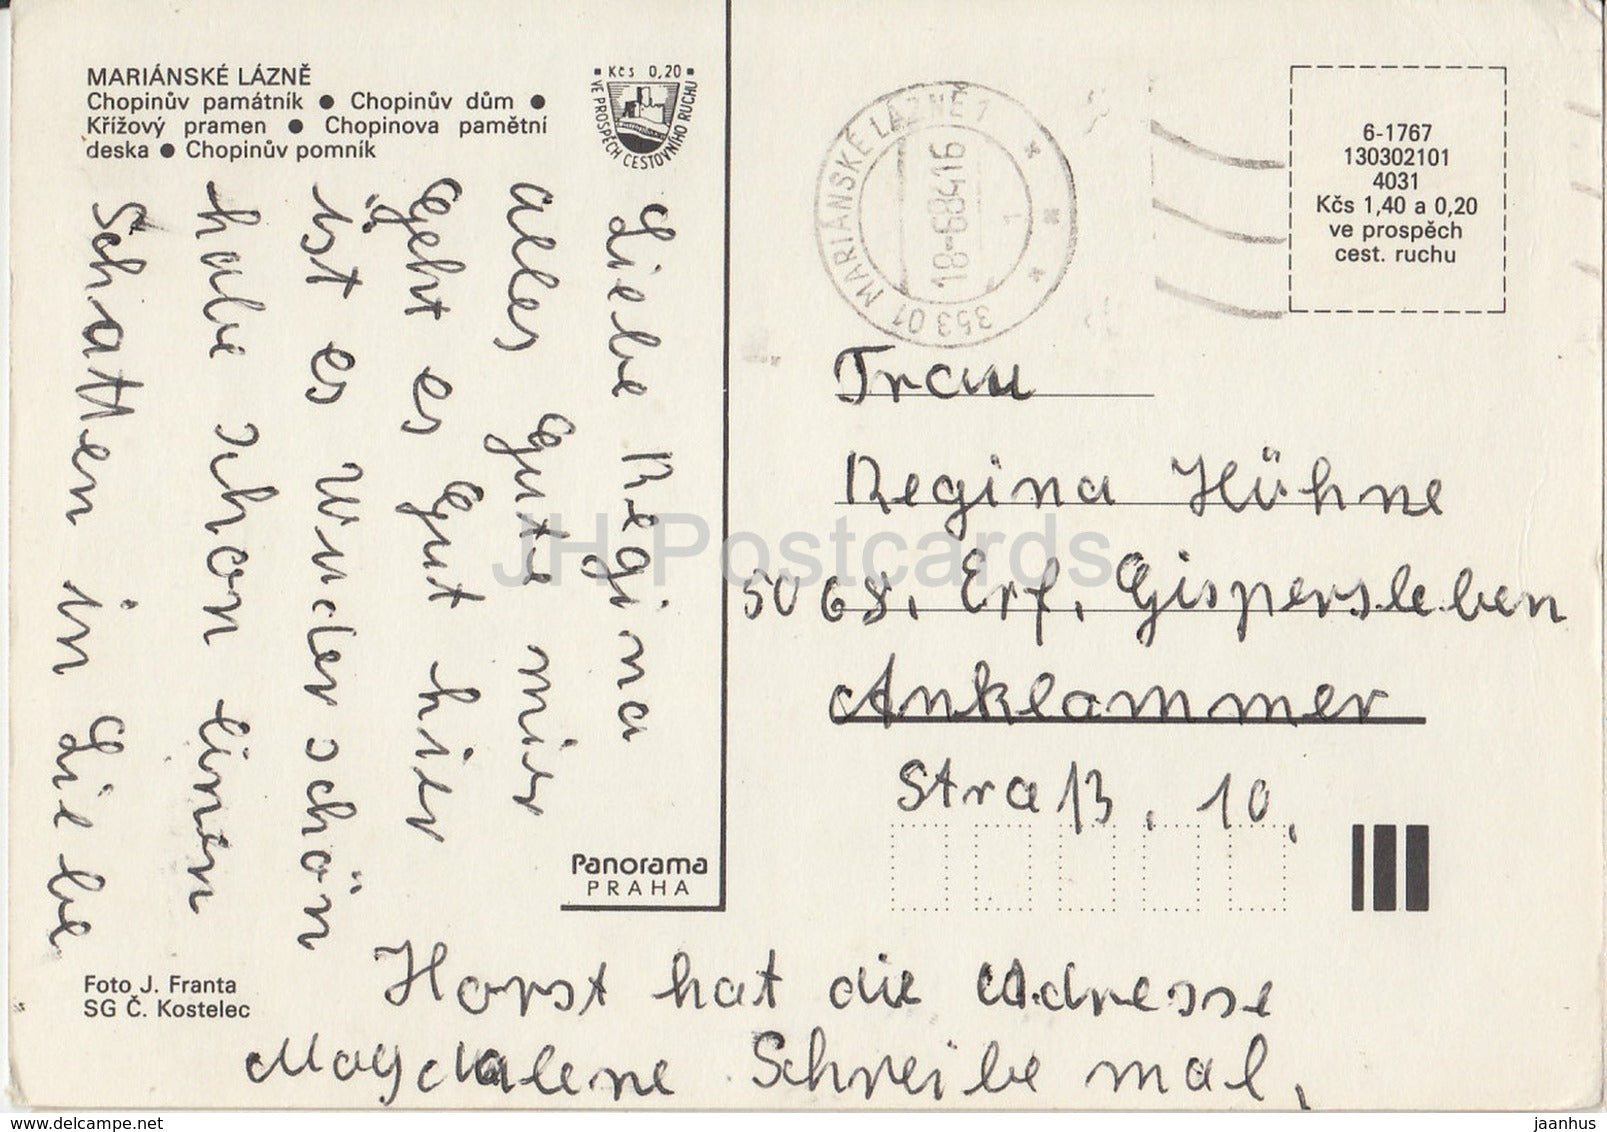 MARIÁNSKÉ LÁZNĚ
Chopinův památník ● Chopinův dům ●
Křížový pramen ● Chopinova pamětní
deska ● Chopinův pomník
Kčs 0,20
VE PROSPĚCH CESTOVNÍHO RUCHU
353 01 MARIÁNSKÉ LÁZNĚ 1
18-6.84 16
6-1767
130302101
4031
Kčs 1,40 a 0,20
ve prospěch
cest. ruchu
Liebe Regina
alles Gute mir
Geht es Gut hier
ist es Wunderschön
habe schon einen
Schatten in Liebe
Horst hat die Adresse
Magdalene Schreibe mal,
Frau
Regina Hühne
5068, Erf, Gispersleben
Anklammer
Straß, 10,
Panorama
PRAHA
Foto J. Franta
SG Č. Kostelec
JH Postcards
www.delcampe.net
jaanhus